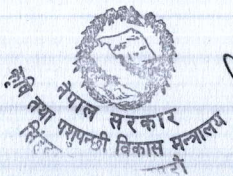 नेपाल सरकार
कृषि तथा पशुपन्छी विकास मन्त्रालय